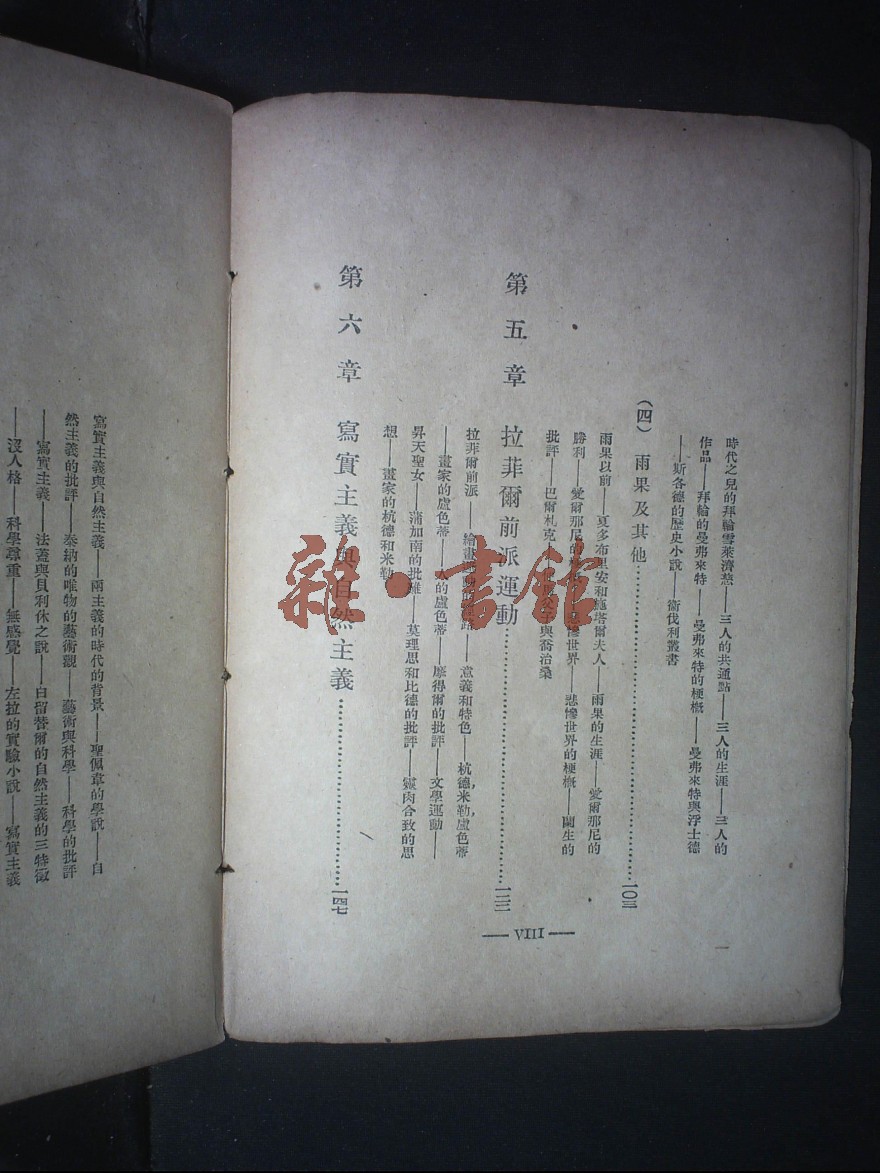 時代之兒的拜輪雪萊濟慈——三人的共通點——三人的生涯——三人的
作品——拜輪的曼弗來特——曼弗來特的梗概——曼弗來特與浮士德
——斯各德的歷史小說——衞伐利叢書
(四) 雨果及其他……一〇三
雨果以前——夏多布里安和施塔爾夫人——雨果的生涯——愛爾那尼的
勝利——愛爾那尼的 悲慘世界——悲慘世界的梗概——關生的
批評——巴爾札克 與喬治桑
第五章 拉菲爾前派運動……一二三
拉菲爾前派——繪畫運動的 ——意義和特色——杭德,米勒,盧色蒂
——畫家的盧色蒂 人的盧色蒂——摩得爾的批評——文學運動——
昇天聖女——蒲加南的批難——莫理思和比德的批評——靈肉合致的思
想——畫家的杭德和米勒
第六章 寫實主義與自然主義……一四七
— VIII —
寫實主義與自然主義——兩主義的時代的背景——聖佩韋的學說——自
然主義的批評——泰納的唯物的藝術觀——藝術與科學——科學的批評
——寫實主義——法蓋與貝利休之說——白留替爾的自然主義的三特徵
——沒人格——科學尊重——無感覺——左拉的實驗小說——寫實主義
雜·書館